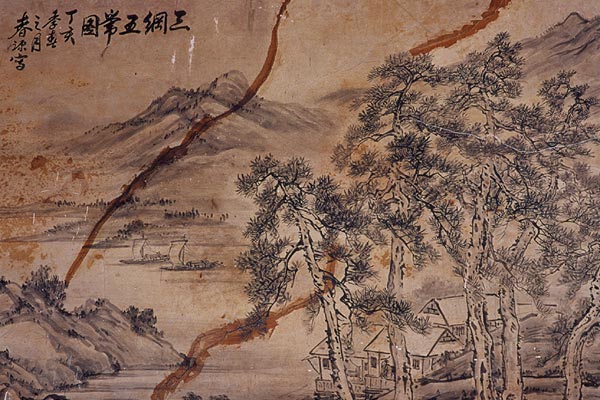 三綱五常图
丁亥
季春
之月
春 写